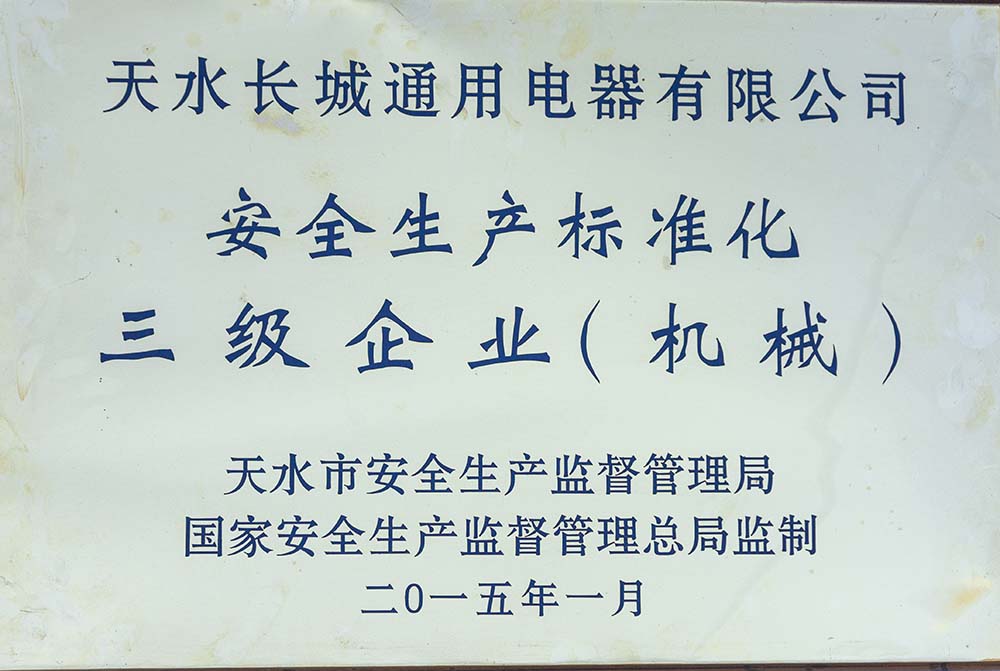 天水长城通用电器有限公司
安全生产标准化
三级企业(机械)
天水市安全生产监督管理局
国家安全生产监督管理总局监制
二0一五年一月